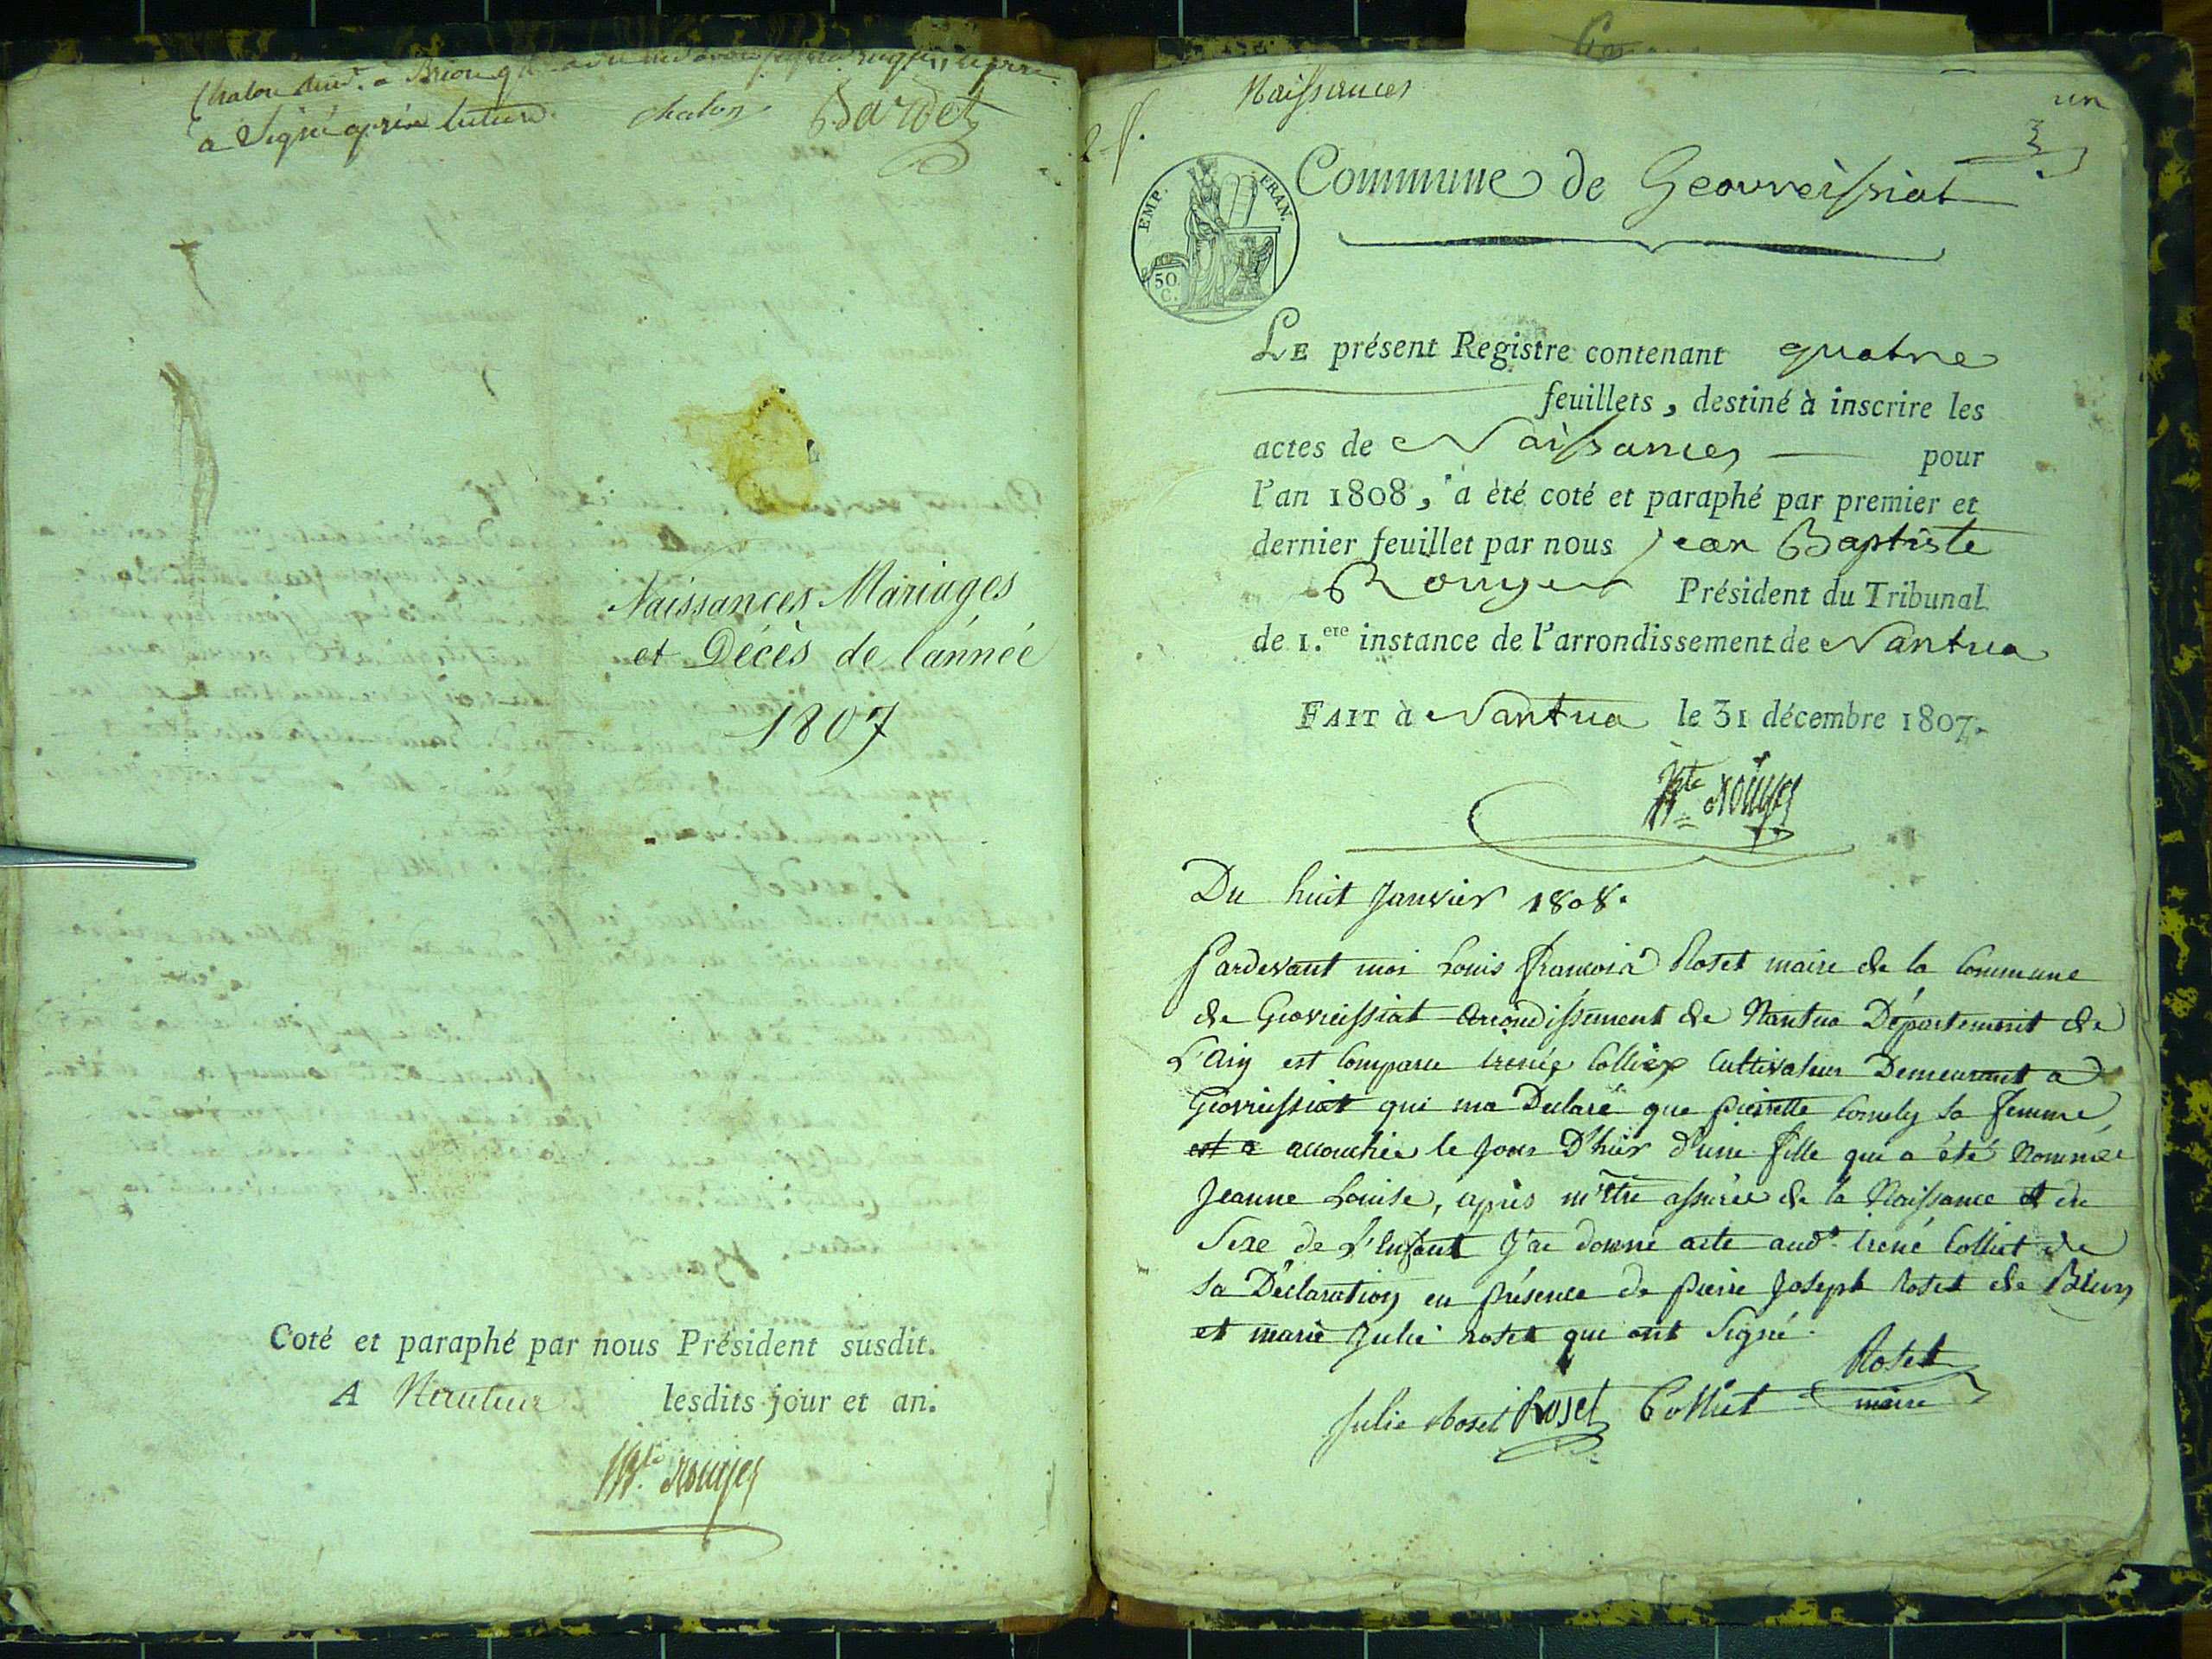 Chalon dem.t à Brion
a Signé après lecture. chalon Bardet
Naissances Mariages
et Décès de l'année
1807
Coté et paraphé par nous Président susdit.
A Nantua lesdits jour et an.
B.te Rouyer
Naissances
un
3
2 f.
Commune de Geovreissiat
EMP. FRAN.
50
C.
LE présent Registre contenant quatre
feuillets, destiné à inscrire les
actes de Naissances pour
l'an 1808, a été coté et paraphé par premier et
dernier feuillet par nous Jean Baptiste
Rouyer Président du Tribunal
de 1.ere instance de l'arrondissement de Nantua
FAIT à Nantua le 31 décembre 1807.
B.te Rouyer
Du huit Janvier 1808.
Pardevant moi Louis François Roset maire de la Commune
de Geovreissiat arrondissement de Nantua Département de
L'Ain est Comparu irené Colliex Cultivateur Demeurant a
Geovreissiat qui ma Declaré que pierrette Comely sa femme,
est a accouchée le Jour D'hier d'une fille qui a été Nommée
Jeanne Louise, après m'etre assurée de la Naissance et du
Sexe de L'Enfant J'ai donné acte aud.t irené Colliet de
sa Déclaration en présence de pierre Joseph Roset de
et marie Julie roset qui ont Signé.
Julie Roset Roset Colliet Roset
maire